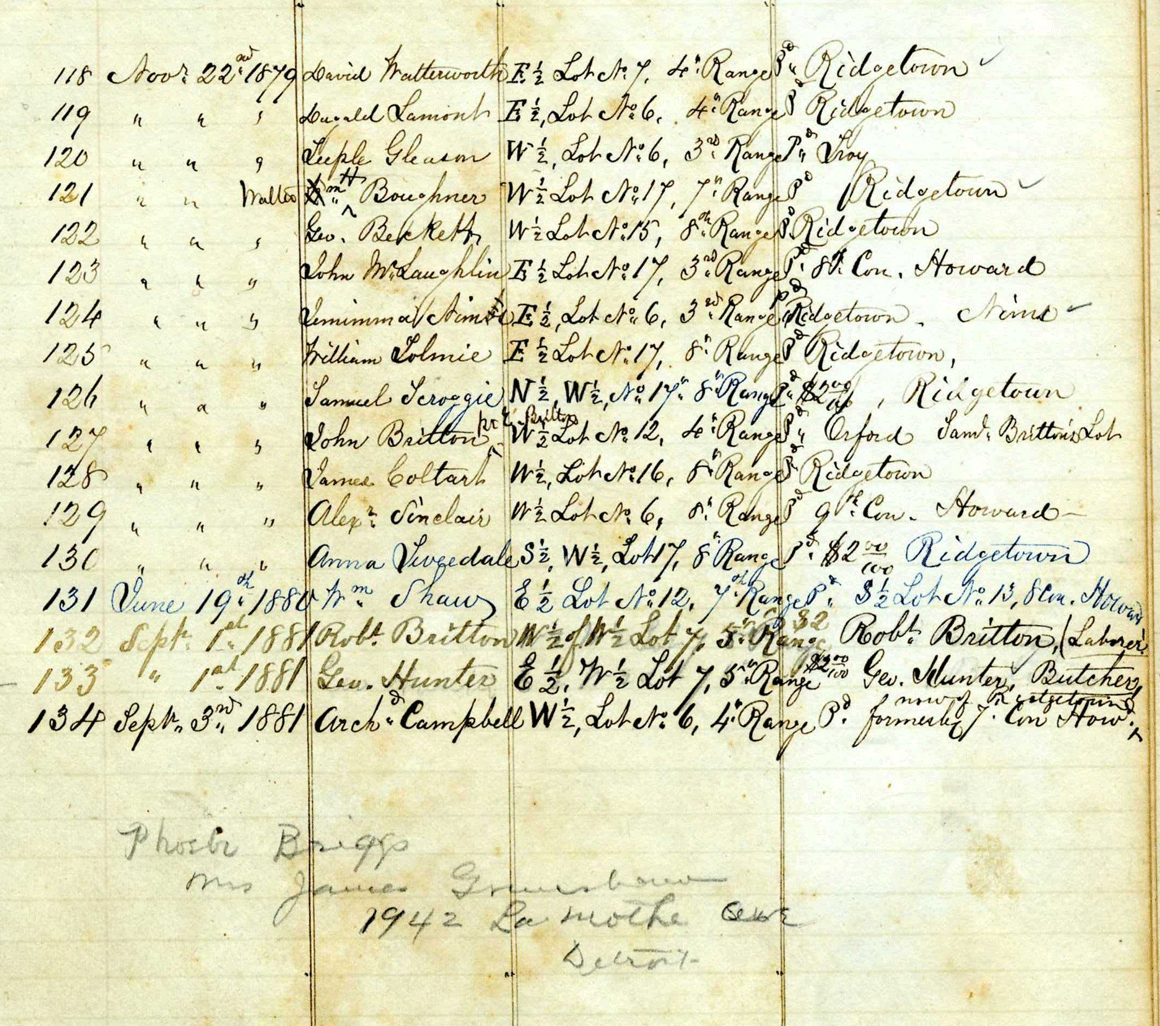 118 Novr. 22nd 1879 David Watterworth E ½ Lot No. 7, 4th Range Pd. Ridgetown ✓
119 " " " Dugald Lamont E ½, Lot No. 6, 4th Range Pd Ridgetown
120 " " " Teeple Gleason W ½, Lot No. 6, 3rd Range Pd. Troy
121 " " Walter Wm. H Boughner W ½ Lot No. 17, 7th Range Pd Ridgetown ✓
122 " " " Geo. Beckett, W ½ Lot No. 15, 8th Range Pd. Ridgetown
123 " " " John McLaughlin E ½ Lot No. 17, 3rd Range Pd. 8th Con. Howard
124 " " " Jemimma Nims E ½, Lot No. 6, 3rd Range Pd Ridgetown. Nims ✓
125 " " " William Tolmie E ½ Lot No. 17, 8th Range Pd Ridgetown,
126 " " " Samuel Scroggie N ½, W ½, No. 17" 8th Range Pd. $2 00/00, Ridgetown
127 " " " John Britton Britton W ½ Lot No. 12, 4th Range Pd. Orford Saml. Britton's Lot
128 " " " James Coltart W ½, Lot No. 16, 8th Range Pd Ridgetown
129 " " " Alexr. Sinclair W ½ Lot No. 6, 8th Range Pd 9th Con. Howard
130 " " " Anna Tweedale S ½, W ½, Lot 17, 8th Range Pd. $2 00/100 Ridgetown
131 June 19th 1880 Wm Shaw E ½ Lot No. 12, 7th Range Pd. S ½ Lot No. 13, 8 Con. Howard
132 Septr. 1st 1881 Robt. Britton W ½ of W ½ Lot 7, 5th Range $2 Robt. Britton, (Laborer
133 " 1st 1881 Geo. Hunter E ½, W ½ Lot 7, 5th Range $2 00/100 Geo. Hunter, Butcher
now of Ridgetown
134 Septr. 3rd 1881 Archd Campbell W ½, Lot No. 6, 4th Range Pd. formerly 7th Con How.
Phoebe Briggs
Mrs James
1942 La Mothe ave
Detroit